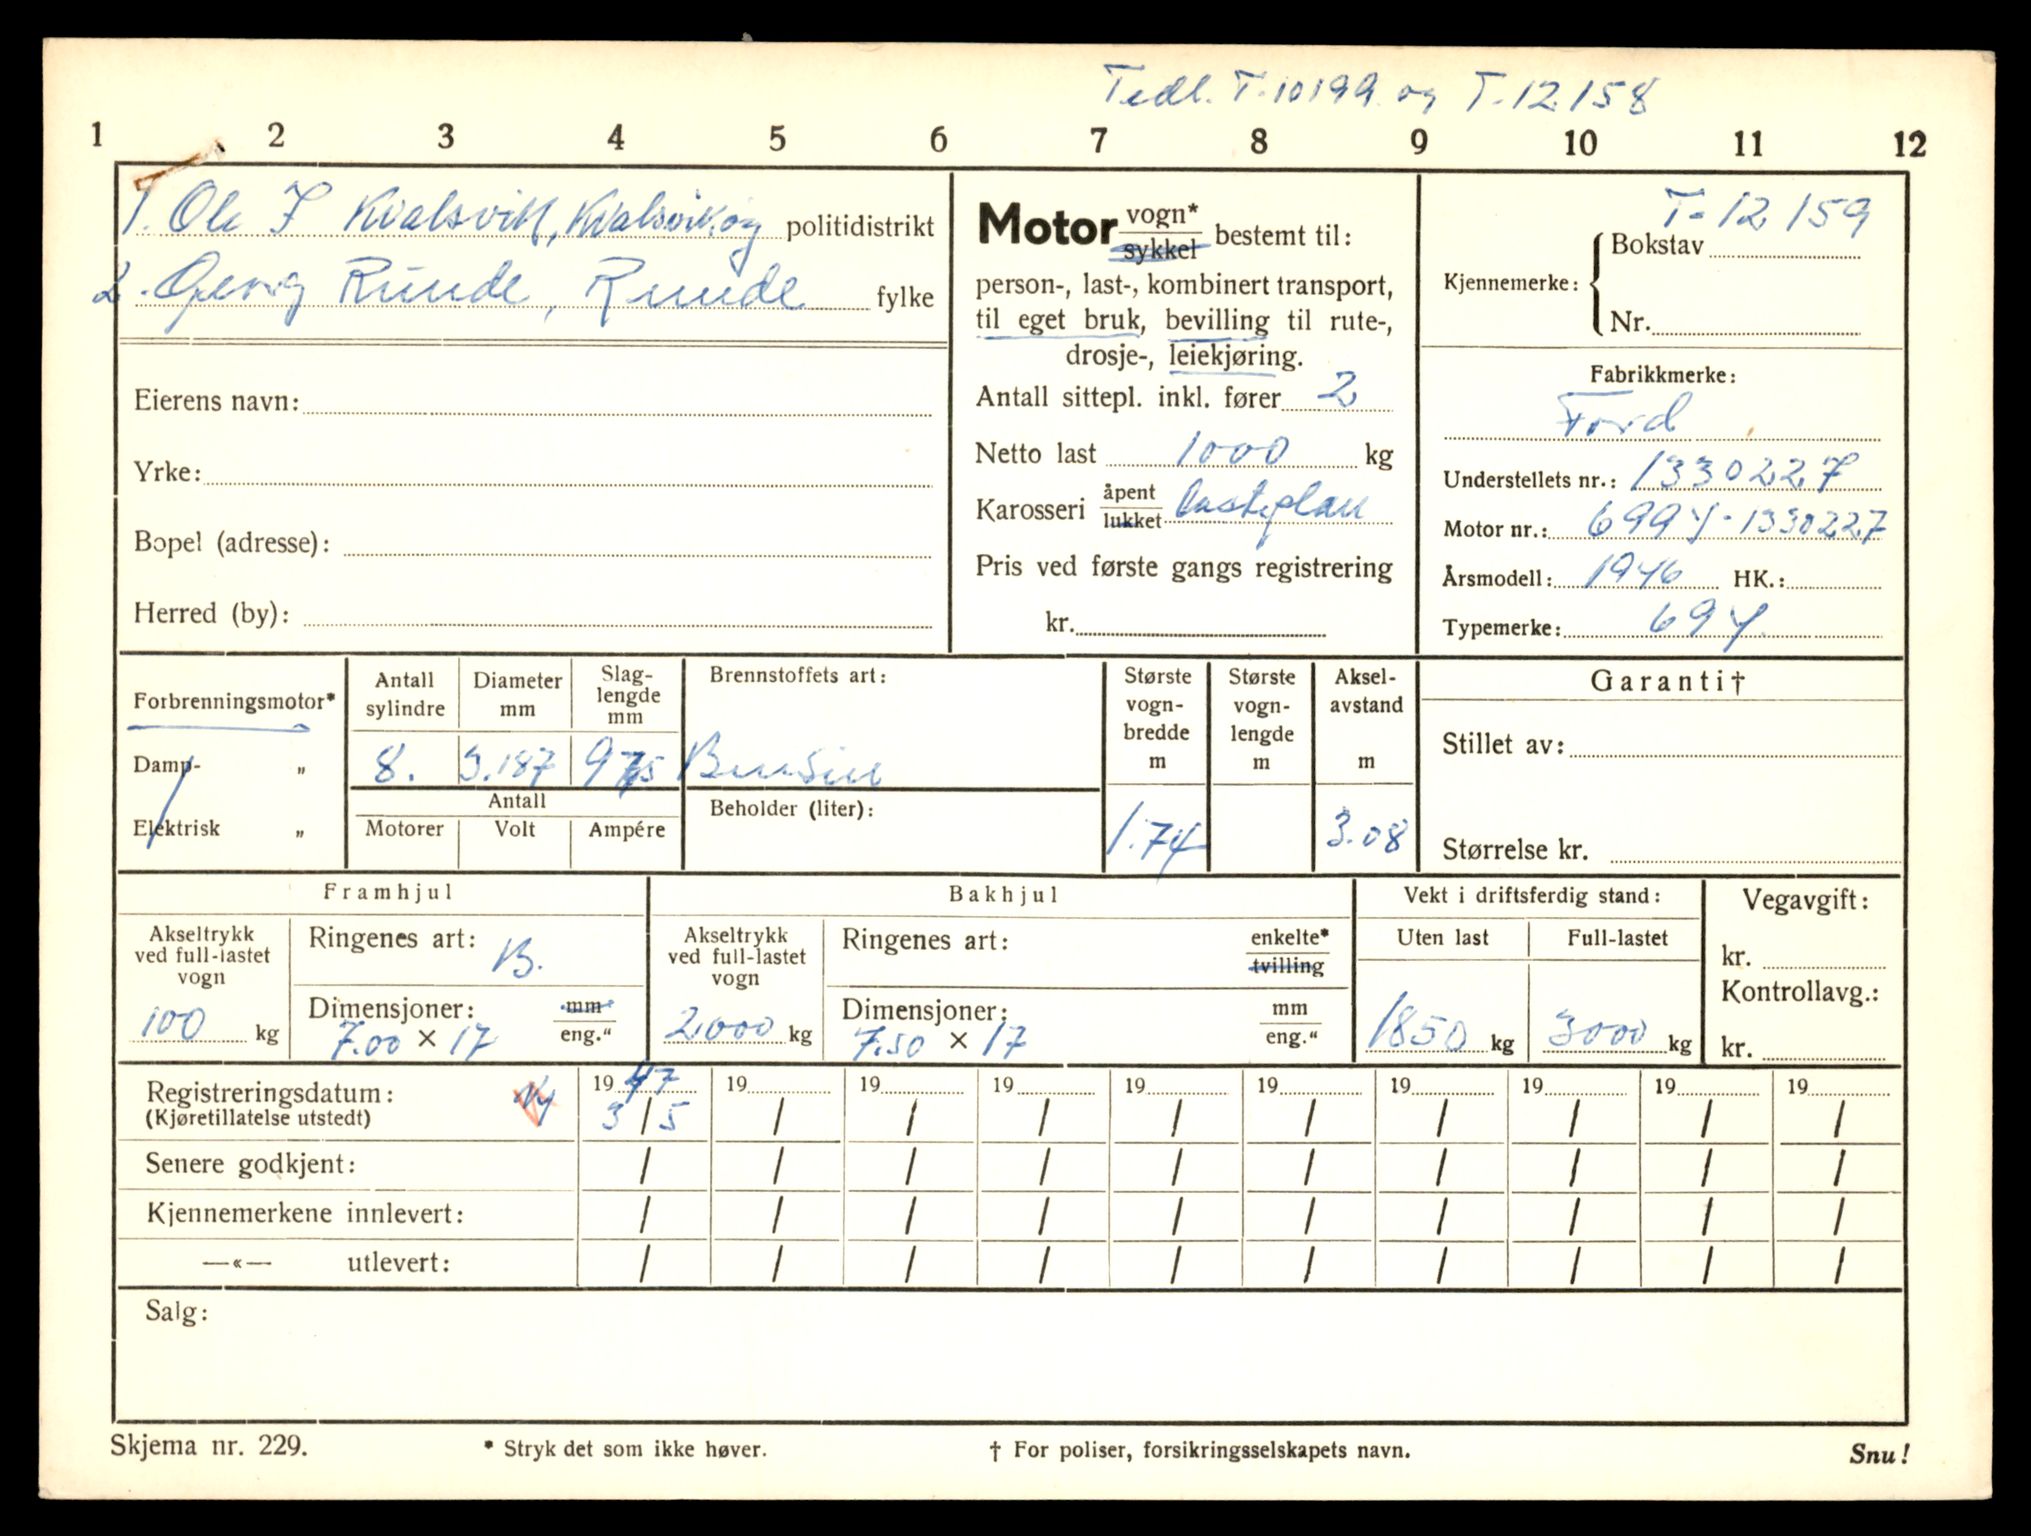 Tidl. T-10199 og T-12158
1 2 3 4 5 6 7 8 9 10 11 12
1. Ole J Kvalsvik, Kvalsvik og politidistrikt
2. Georg Runde, Runde fylke
Eierens navn:
Yrke:
Bopel (adresse):
Herred (by):
Motor vogn* sykkel bestemt til:
person-, last-, kombinert transport,
til eget bruk, bevilling til rute-,
drosje-, leiekjøring.
Antall sittepl. inkl. fører 2
Netto last 1000 kg
Karosseri åpent lukket lasteplan
Pris ved første gangs registrering
kr.
T-12159
Kjennemerke: { Bokstav
Nr.
Fabrikkmerke:
Ford
Understellets nr.: 1330227
Motor nr.: 699Y-1330227
Årsmodell: 1946 HK.:
Typemerke: 69Y.
Forbrenningsmotor*
Damp- „
Elektrisk „
Antall sylindre
8.
Diameter mm
3.187
Slag-lengde mm
Antall
Motorer Volt Ampére
Brennstoffets art:
Bensin
Beholder (liter):
Største vogn-bredde m
1.74
Største vogn-lengde m
Aksel-avstand m
3.08
Garanti†
Stillet av:
Størrelse kr.
Framhjul
Akseltrykk ved full-lastet vogn
100 kg
Ringenes art: B.
Dimensjoner: mm eng."
7.00 × 17
Bakhjul
Akseltrykk ved full-lastet vogn
2000 kg
Ringenes art: enkelte* tvilling
Dimensjoner: mm eng."
7.50 × 17
Vekt i driftsferdig stand:
Uten last Full-lastet
1850 kg 3000 kg
Vegavgift:
kr.
Kontrollavg.:
kr.
Registreringsdatum: Ny 1947 19 19 19 19 19 19 19 19 19
(Kjøretillatelse utstedt) 3/5 / / / / / / / / /
Senere godkjent: / / / / / / / / / /
Kjennemerkene innlevert: / / / / / / / / / /
—«— utlevert: / / / / / / / / / /
Salg:
Skjema nr. 229. * Stryk det som ikke høver. † For poliser, forsikringsselskapets navn. Snu!